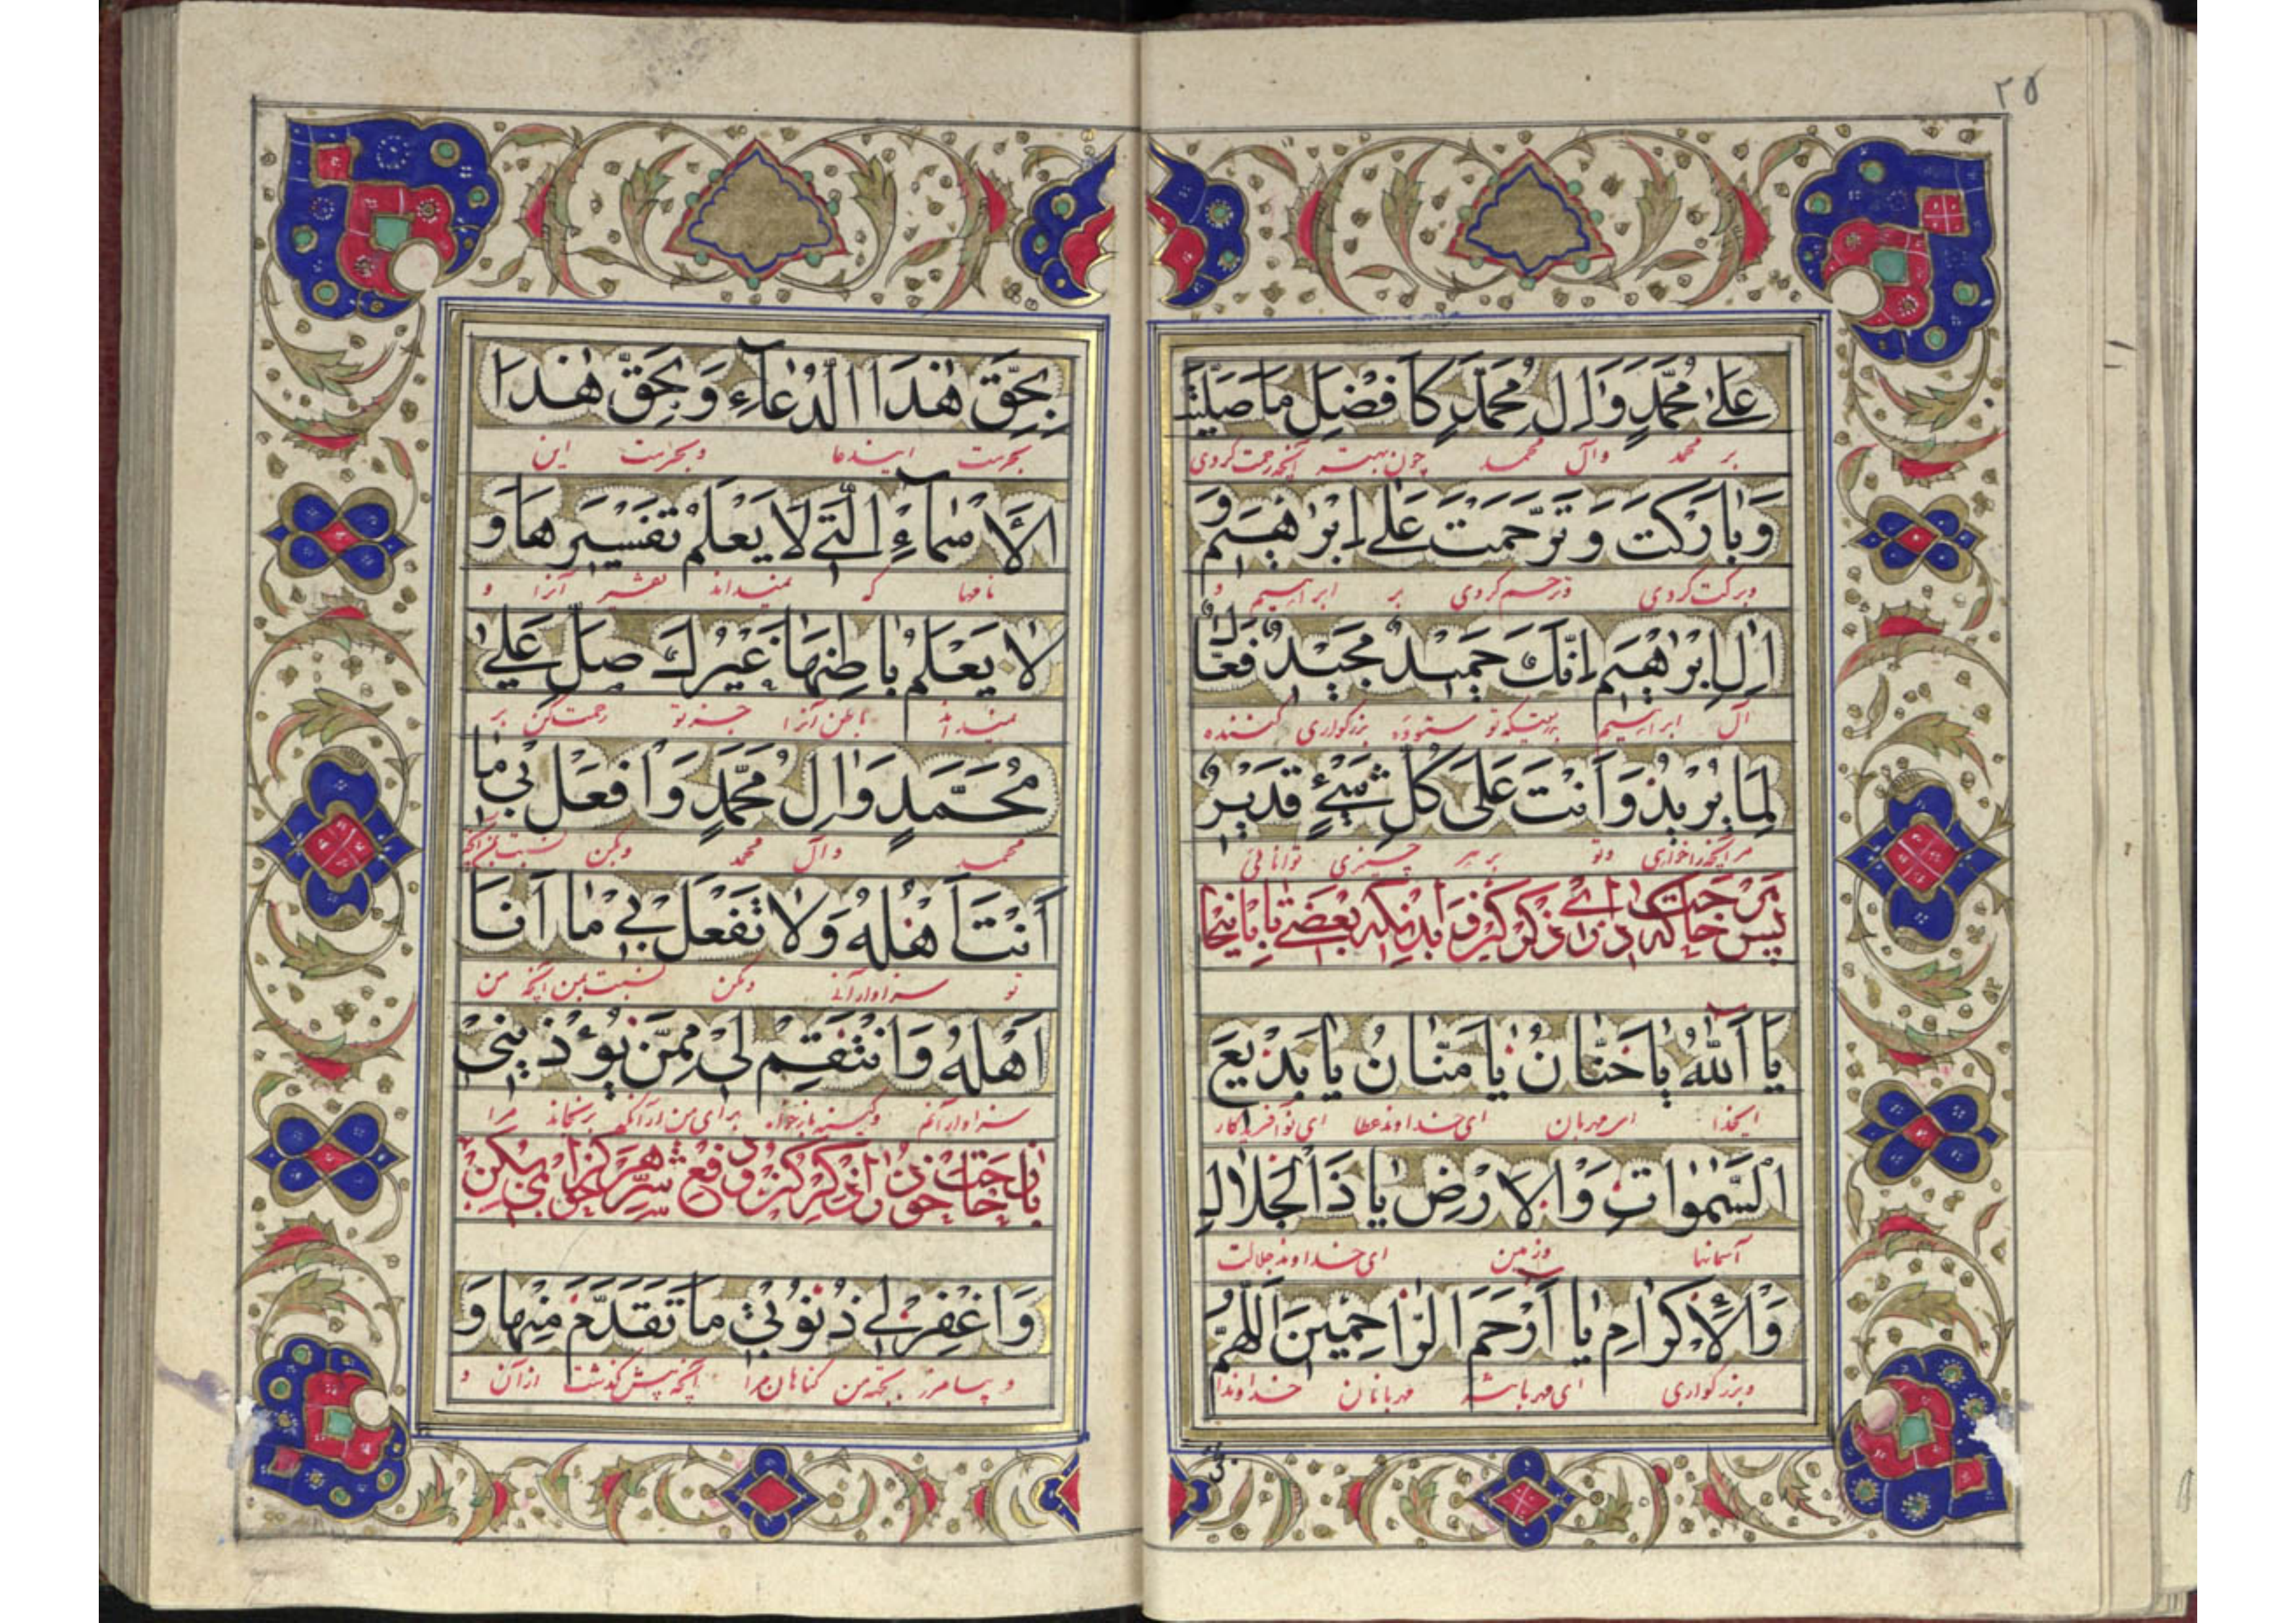 ۲۵
عَلىٰ مُحَمَّدٍ وَاٰلِ مُحَمَّدٍ كَاَفْضَلِ مَا صَلَّيْتَ
بر محمد وآل محمد چون بهتر آنچه رحمت کردی
وَبٰارَكْتَ وَتَرَحَّمْتَ عَلىٰ اِبْرٰاهيٖمَ وَ
وبرکت کردی وترحم کردی بر ابراهیم و
اٰلِ اِبْرٰاهيٖمَ اِنَّكَ حَميٖدٌ مَجيٖدٌ فَعّٰالٌ
آل ابراهیم بدرستیکه تو ستوده بزرگواری کننده
لِمٰا يُريٖدُ وَاَنْتَ عَلىٰ كُلِّ شَيْءٍ قَديٖرٌ
مر آنچه را خواری وتو بر هر چیزی توانائی
پس حاجت که داری ذکر کن و بدانکه بعضی تا باینجا
يٰا اَللّٰهُ يٰا حَنّٰانُ يٰا مَنّٰانُ يٰا بَديٖعَ
ایخدا ای مهربان ای خداوند عطا ای نو آفریدکار
السَّمٰوٰاتِ وَالْاَرْضِ يٰا ذَا الْجَلٰالِ
آسمانها وزمین ای خداوند جلالت
وَالْاِكْرٰامِ يٰا اَرْحَمَ الرّٰاحِميٖنَ اَللّٰهُمَّ
وبزرکواری ای مهربانتر مهربانان خداوندا
بِحَقِّ هٰذَا الدُّعٰآءِ وَبِحَقِّ هٰذَا
بحرمت ایندعا وبحرمت این
الْاَسْمٰآءِ الَّتيٖ لٰا يَعْلَمُ تَفْسيٖرَهٰا وَ
نامها که نمیداند تفسیر آنرا و
لٰا يَعْلَمُ بٰاطِنَهٰا غَيْرُكَ صَلِّ عَلىٰ
نمیداند باطن آنرا جز تو رحمت کن بر
مُحَمَّدٍ وَاٰلِ مُحَمَّدٍ وَافْعَلْ بيٖ مٰا
محمد وآل محمد وبکن نسبت بمن آنچه
اَنْتَ اَهْلُهُ وَلٰا تَفْعَلْ بيٖ مٰا اَنَا
تو سزاوار آنی ومکن نسبت بمن آنچه من
اَهْلُهُ وَانْتَقِمْ ليٖ مِمَّنْ يُؤْذيٖنيٖ
سزاوار آنم وکینه بازخواه برای من از آنکه برنجاند مرا
حاجت خود را ذکر کن و دفع شر هر که خواهی بکن
وَاغْفِرْ ليٖ ذُنُوبيٖ مٰا تَقَدَّمَ مِنْهٰا وَ
و بیامرز بجهة من کناهان مرا آنچه پیش گذشت از آن و